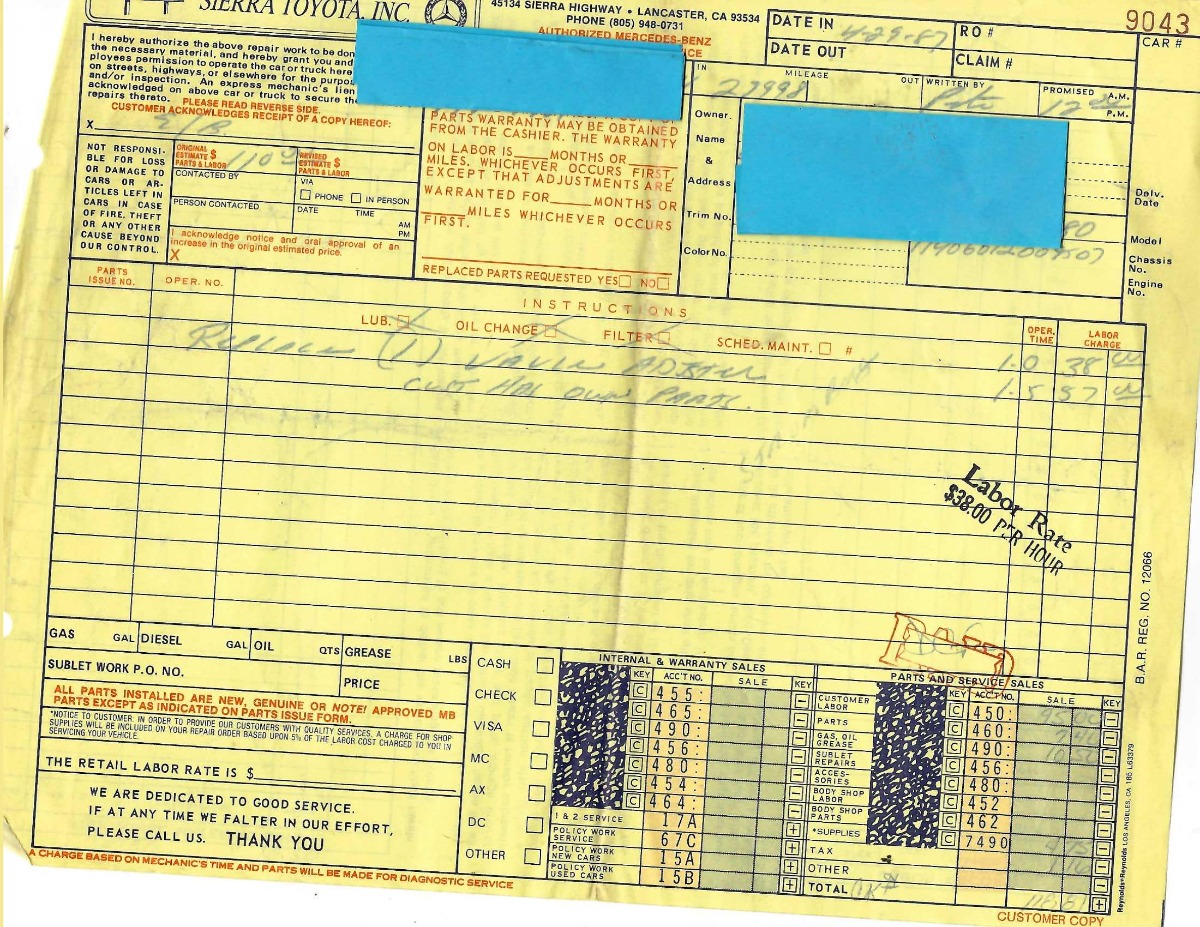 SIERRA TOYOTA, INC.
45134 SIERRA HIGHWAY • LANCASTER, CA 93534
PHONE (805) 948-0731
AUTHORIZED MERCEDES-BENZ
DATE IN 4-29-87
DATE OUT
RO #
CLAIM #
9043
CAR #
I hereby authorize the above repair work to be don
the necessary material, and hereby grant you and
ployees permission to operate the car or truck here
on streets, highways, or elsewhere for the purpo
and/or inspection. An express mechanic's lien
acknowledged on above car or truck to secure the
repairs thereto. PLEASE READ REVERSE SIDE.
CUSTOMER ACKNOWLEDGES RECEIPT OF A COPY HEREOF:
X
IN MILEAGE OUT
27998
WRITTEN BY
Pete
PROMISED A.M.
P.M.
12 00
NOT RESPONSI-
BLE FOR LOSS
OR DAMAGE TO
CARS OR AR-
TICLES LEFT IN
CARS IN CASE
OF FIRE, THEFT
OR ANY OTHER
CAUSE BEYOND
OUR CONTROL.
ORIGINAL
ESTIMATE $
PARTS & LABOR
110 00
REVISED
ESTIMATE $
PARTS & LABOR
CONTACTED BY
VIA
PHONE IN PERSON
PERSON CONTACTED
DATE TIME
AM
PM
I acknowledge notice and oral approval of an
increase in the original estimated price.
X
PARTS WARRANTY MAY BE OBTAINED
FROM THE CASHIER. THE WARRANTY
ON LABOR IS MONTHS OR
MILES. WHICHEVER OCCURS FIRST,
EXCEPT THAT ADJUSTMENTS ARE
WARRANTED FOR MONTHS OR
MILES WHICHEVER OCCURS
FIRST.
REPLACED PARTS REQUESTED YES NO
Owner.
Name
&
Address
Trim No.
Color No.
Delv.
Date
Model
Chassis
No.
Engine
No.
PARTS
ISSUE NO.
OPER. NO.
INSTRUCTIONS
OPER.
TIME
LABOR
CHARGE
LUB. OIL CHANGE FILTER SCHED. MAINT. #
1.0 38 00
Replace
1.5 57 00
Cust Has Own Parts.
Labor Rate
$38.00 PER HOUR
B.A.R. REG. NO. 12066
GAS GAL DIESEL GAL OIL QTS GREASE LBS
SUBLET WORK P.O. NO.
PRICE
ALL PARTS INSTALLED ARE NEW, GENUINE OR NOTE! APPROVED MB
PARTS EXCEPT AS INDICATED ON PARTS ISSUE FORM.
*NOTICE TO CUSTOMER: IN ORDER TO PROVIDE OUR CUSTOMERS WITH QUALITY SERVICES, A CHARGE FOR SHOP
SUPPLIES WILL BE INCLUDED ON YOUR REPAIR ORDER BASED UPON 5% OF THE LABOR COST CHARGED TO YOU IN
SERVICING YOUR VEHICLE.
THE RETAIL LABOR RATE IS $
WE ARE DEDICATED TO GOOD SERVICE.
IF AT ANY TIME WE FALTER IN OUR EFFORT,
PLEASE CALL US. THANK YOU
CASH
CHECK
VISA
MC
AX
DC
OTHER
INTERNAL & WARRANTY SALES
KEY ACC'T NO. SALE KEY
C 455:
C 465:
C 490:
C 456:
C 480:
C 454:
C 464:
1 & 2 SERVICE 17A
POLICY WORK
SERVICE 67C
POLICY WORK
NEW CARS 15A
POLICY WORK
USED CARS 15B
PARTS AND SERVICE SALES
KEY ACC'T NO. SALE KEY
CUSTOMER
LABOR C 450:
PARTS C 460:
GAS, OIL
GREASE C 490:
SUBLET
REPAIRS C 456:
ACCES-
SORIES C 480:
BODY SHOP
LABOR C 452
BODY SHOP
PARTS C 462
*SUPPLIES C 7490
TAX
OTHER
TOTAL
Reynolds+Reynolds LOS ANGELES, CA 185 L63379
A CHARGE BASED ON MECHANIC'S TIME AND PARTS WILL BE MADE FOR DIAGNOSTIC SERVICE
CUSTOMER COPY